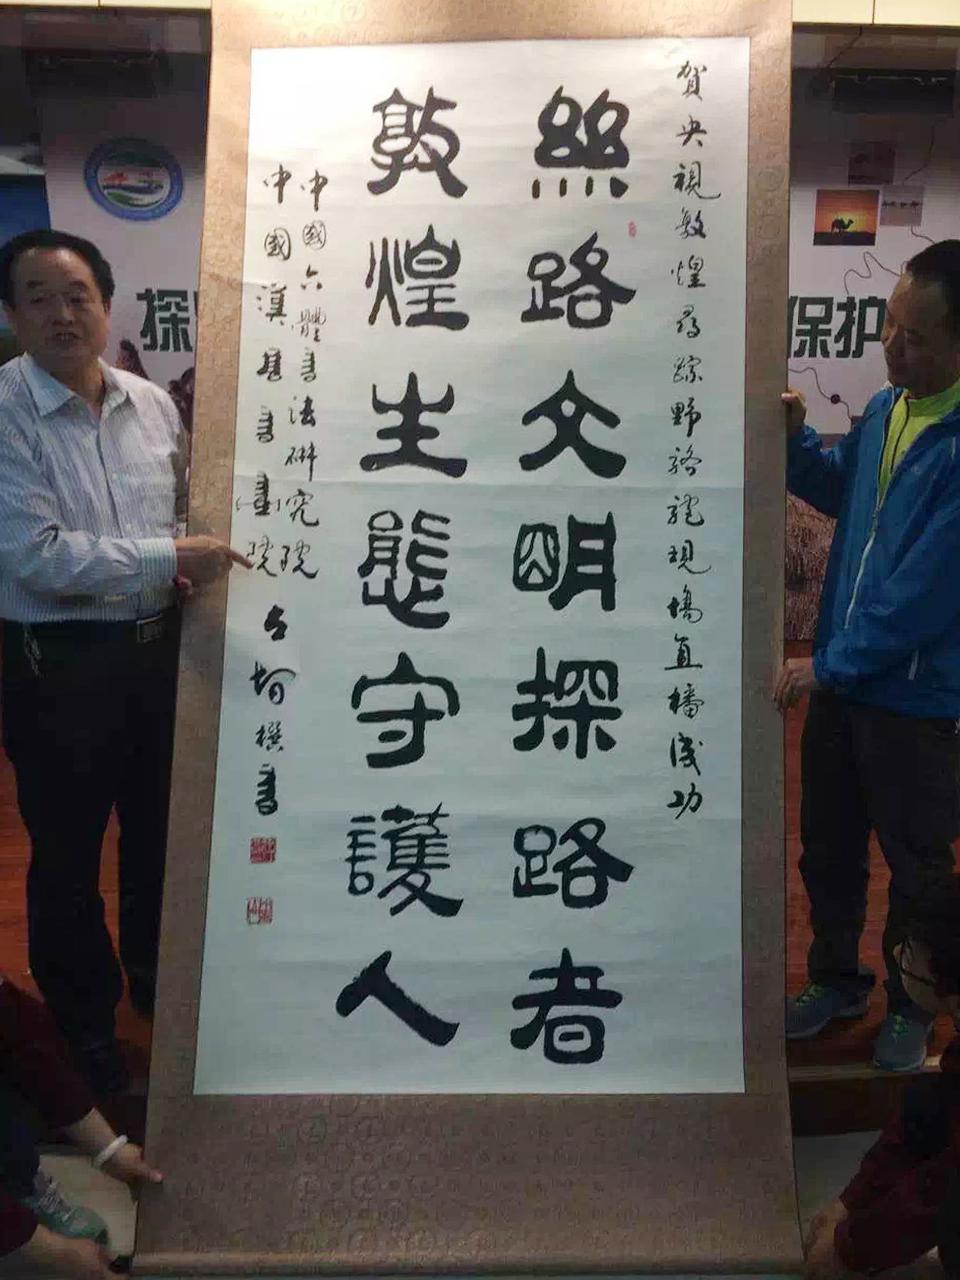 賀央視敦煌尋踪野駱駝現場直播成功
絲路文明探路者
敦煌生態守護人
中國六體書法研究院
中國漢唐書畫院
撰書
探
保护